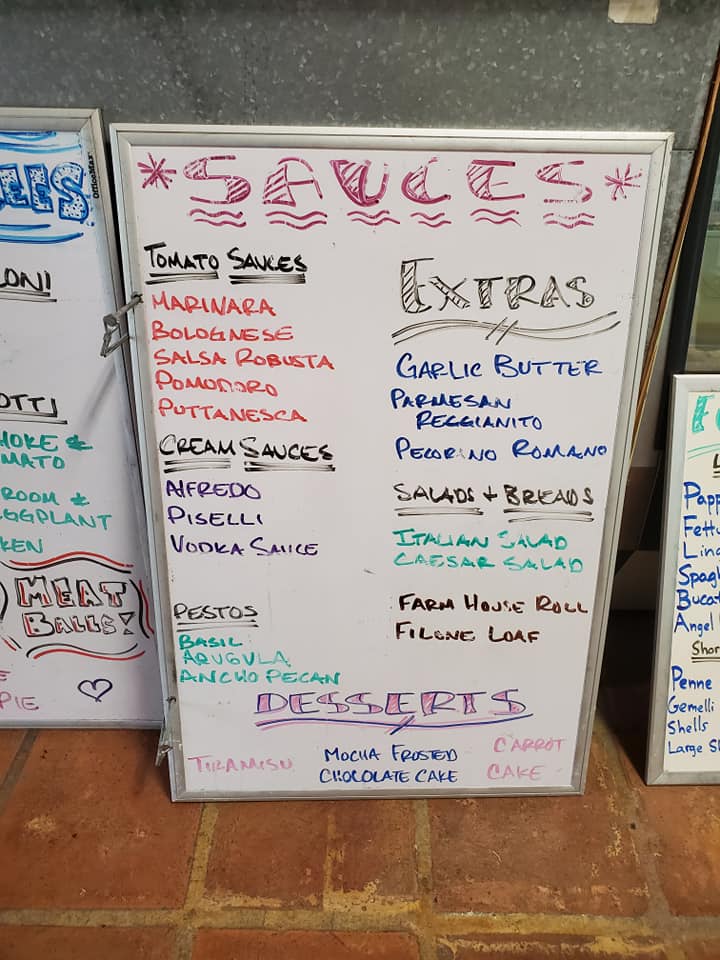 OfficeMax
LONI
OTTI
HOKE &
MATO
ROOM &
EGGPLANT
KEN
MEAT
BALLS!
PIE
*SAUCES*
TOMATO SAUCES
MARINARA
BOLOGNESE
SALSA ROBUSTA
POMODORO
PUTTANESCA
CREAM SAUCES
ALFREDO
PISELLI
VODKA SAUCE
PESTOS
BASIL
ARUGULA
ANCHO PECAN
EXTRAS
GARLIC BUTTER
PARMESAN
REGGIANITO
PECORINO ROMANO
SALADS + BREADS
ITALIAN SALAD
CAESAR SALAD
FARM HOUSE ROLL
FILONE LOAF
DESSERTS
TIRAMISU
MOCHA FROSTED
CHOCOLATE CAKE
CARROT
CAKE
F
L
Papp
Fettu
Ling
Spagh
Bucat
Angel
Shor
Penne
Gemelli
Shells
Large Sh